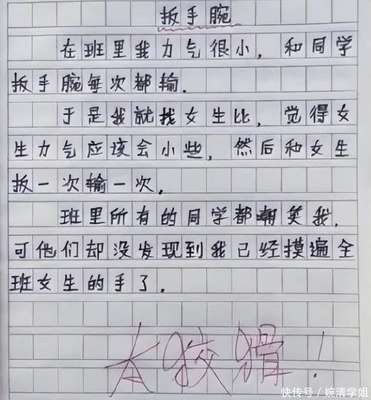 扳手腕
在班里我力气很小，和同学
扳手腕每次都输．
于是我就找女生比，觉得女
生力气应该会小些，然后和女生
扳一次输一次．
班里所有的同学都嘲笑我．
可他们却没发现到我已经摸遍全
班女生的手了．
太狡猾！
快传号/皖清学姐